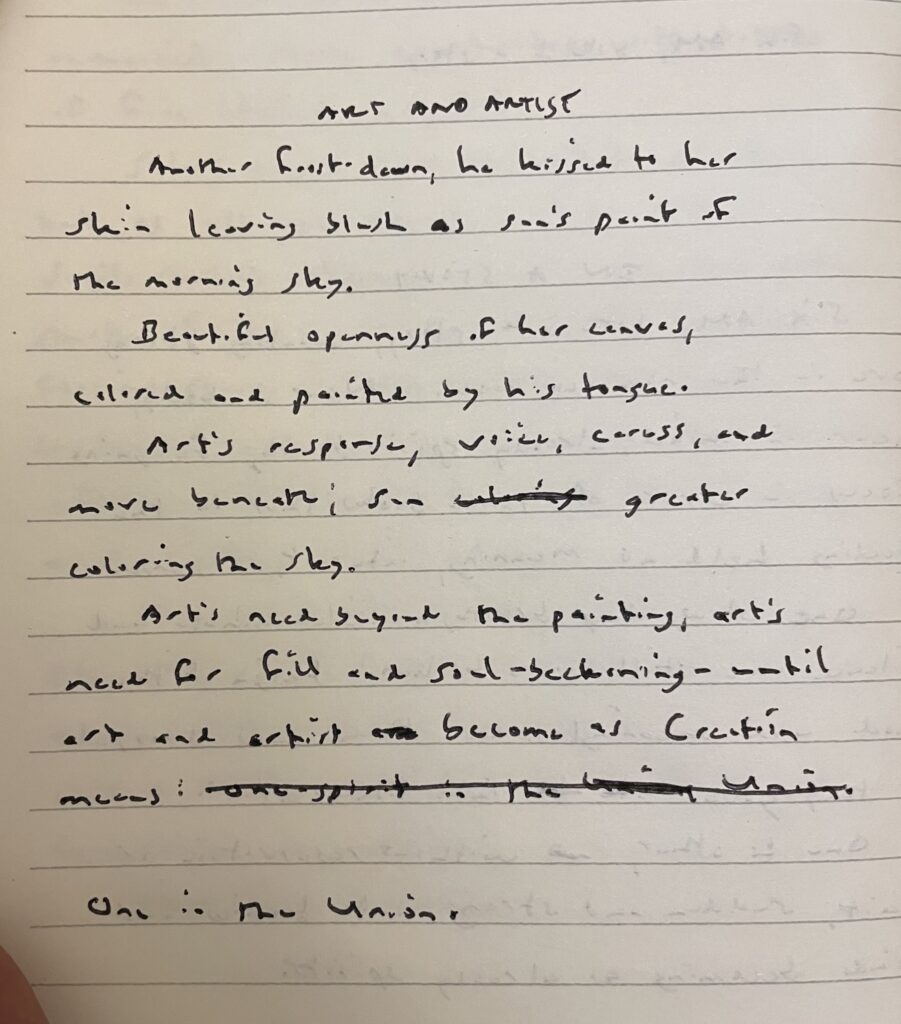 ART AND ARTIST
Another frost-dawn, he kissed to her
skin leaving blush as sun's paint of
the morning sky.
Beautiful openness of her canvas,
colored and painted by his tongue.
Art's response, voice, caress, and
move beneath; sun greater
coloring the sky.
Art's need beyond the painting, art's
need for fill and soul-beckoning - until
art and artist become as Creation
means:
One in the Union.